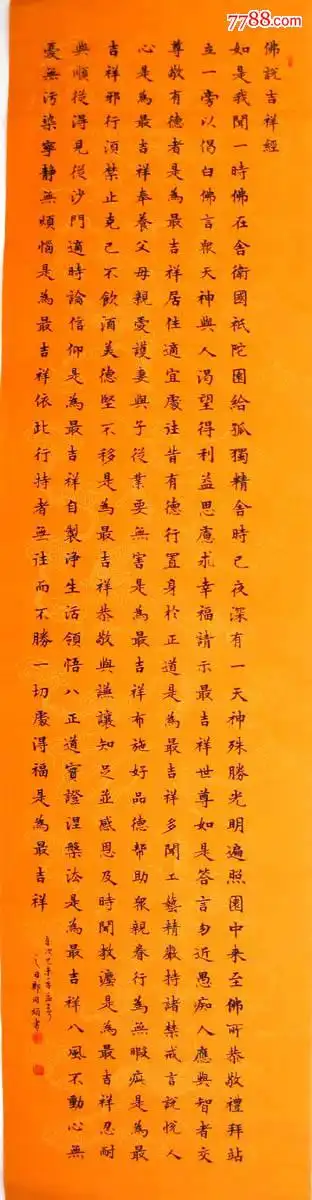 7788.com
佛說吉祥經
如是我聞一時佛在舍衛國祇陀園給孤獨精舍時已夜深有一天神殊勝光明遍照園中來至佛所恭敬禮拜站
立一旁以偈白佛言衆天神與人渴望得利益思慮求幸福請示最吉祥世尊如是答言勿近愚痴人應與智者交
尊敬有德者是為最吉祥居住適宜處往昔有德行置身於正道是為最吉祥多聞工藝精持諸禁戒言說悅人
心是為最吉祥奉養父母親愛護妻與子從業要無害是為最吉祥布施好品德幫助衆親眷行為無瑕疵是為最
吉祥邪行須禁止克己不飲酒美德堅不移是為最吉祥恭敬與謙讓知足並感恩及時聞教灋是為最吉祥忍耐
與順從得見從沙門適時論信仰是為最吉祥自製淨生活領悟八正道實證涅槃法是為最吉祥八風不動心無
憂無污染寧靜無煩惱是為最吉祥依此行持者無往而不勝一切處得福是為最吉祥